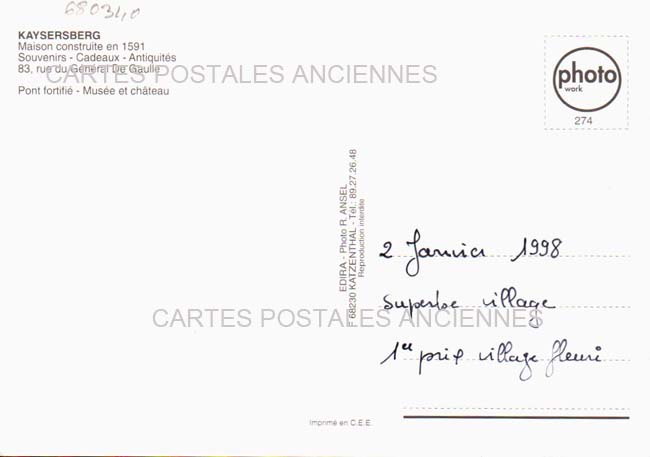 680340
KAYSERSBERG
Maison construite en 1591
Souvenirs - Cadeaux - Antiquités
83, rue du Général De Gaulle
CARTES POSTALES ANCIENNES
Pont fortifié - Musée et château
photo
work
274
EDIRA - Photo R. ANSEL
F 68230 KATZENTHAL - Tél.: 89.27.26.48
Reproduction interdite
2 Janvier 1998
superbe village
CARTES POSTALES ANCIENNES
1er prix village fleuri
Imprimé en C.E.E.